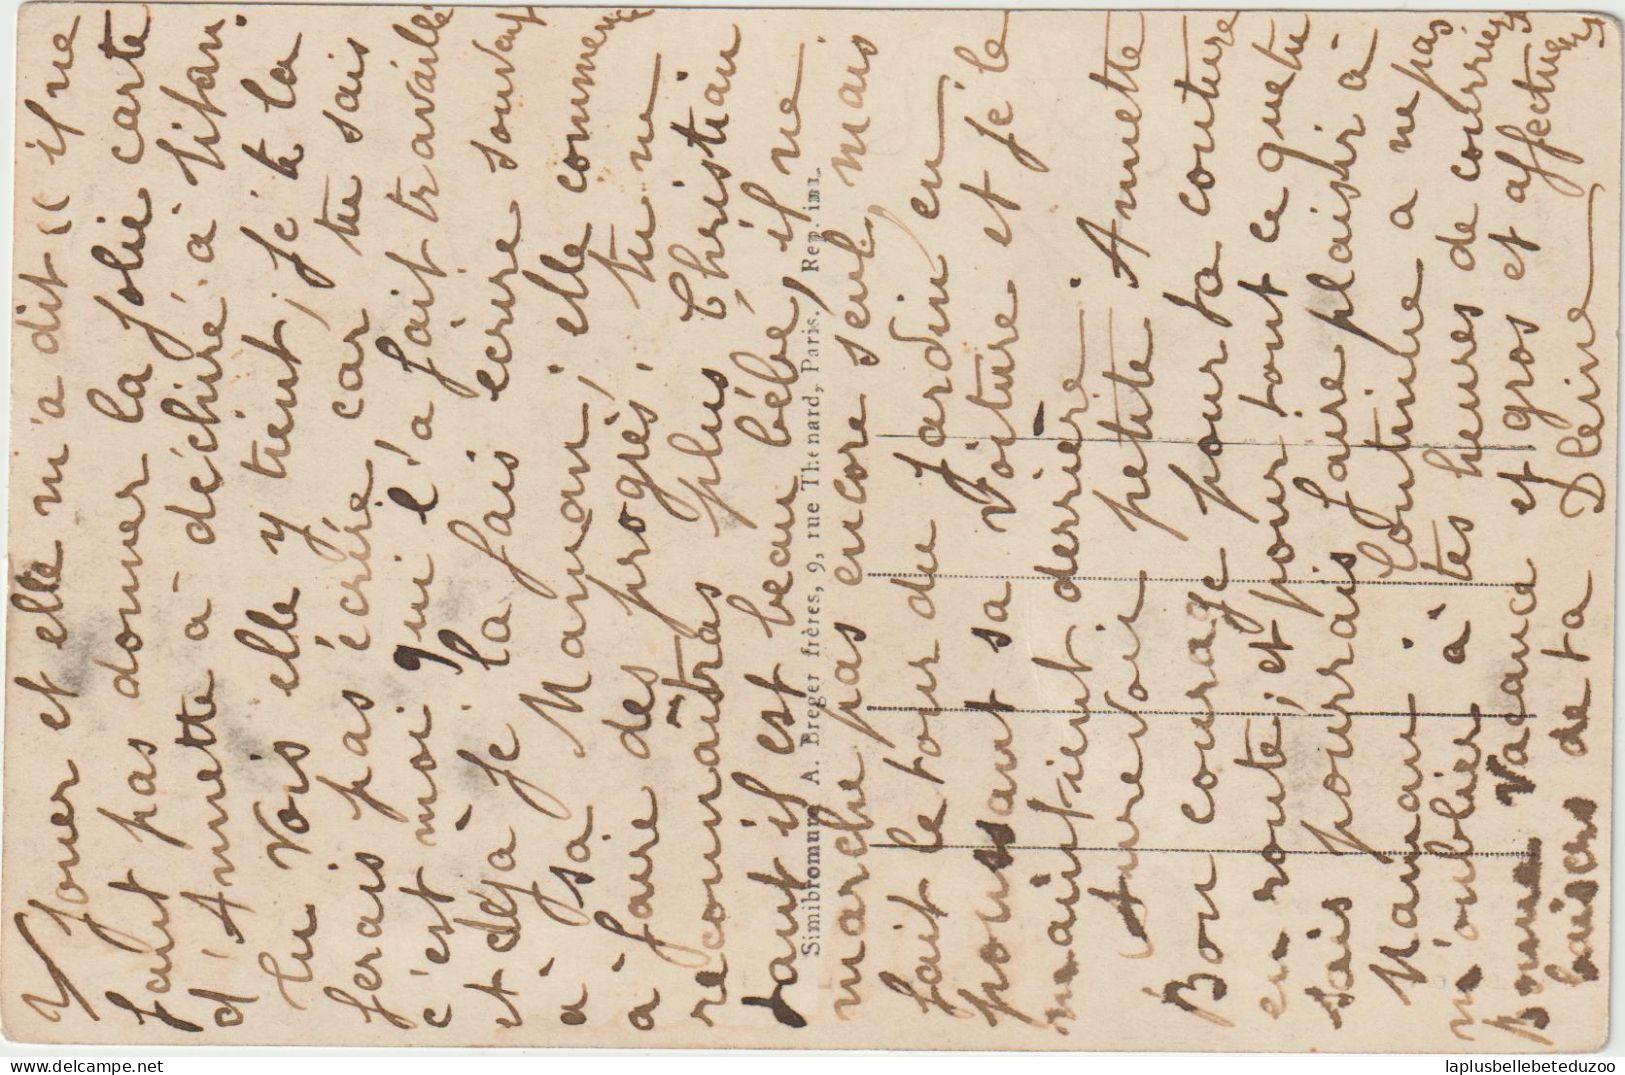 Jouer et elle m'a dit « il ne
faut pas donner la jolie carte
d'Annette à déchiré à
tu vois elle y tient, je te la
ferais pas écrire car tu sais
c'est moi qui l'a fait travaillé
et déjà je la fais écrire souvent
à sa Maman, elle commence
à faire des progrès, tu ne
reconnaitras plus Christian
tant il est beau bébé, il ne
marche pas encore seul, mais
fait le tour du jardin en
poussant sa voiture et je le
maintient derrière.
Aurevoir petite Annette
Bon courage pour ta couture
en route, et pour tout ce que tu
sais pourrais faire plaisir à
Maman. Continue a ne pas
m'oublier à tes heures de courrier
Bonne Vacance et gros et affectueux
baisers de ta
Simibromure A. Breger frères, 9, rue Thenard, Paris. Rep. int.
laplusbellebeteduzoo